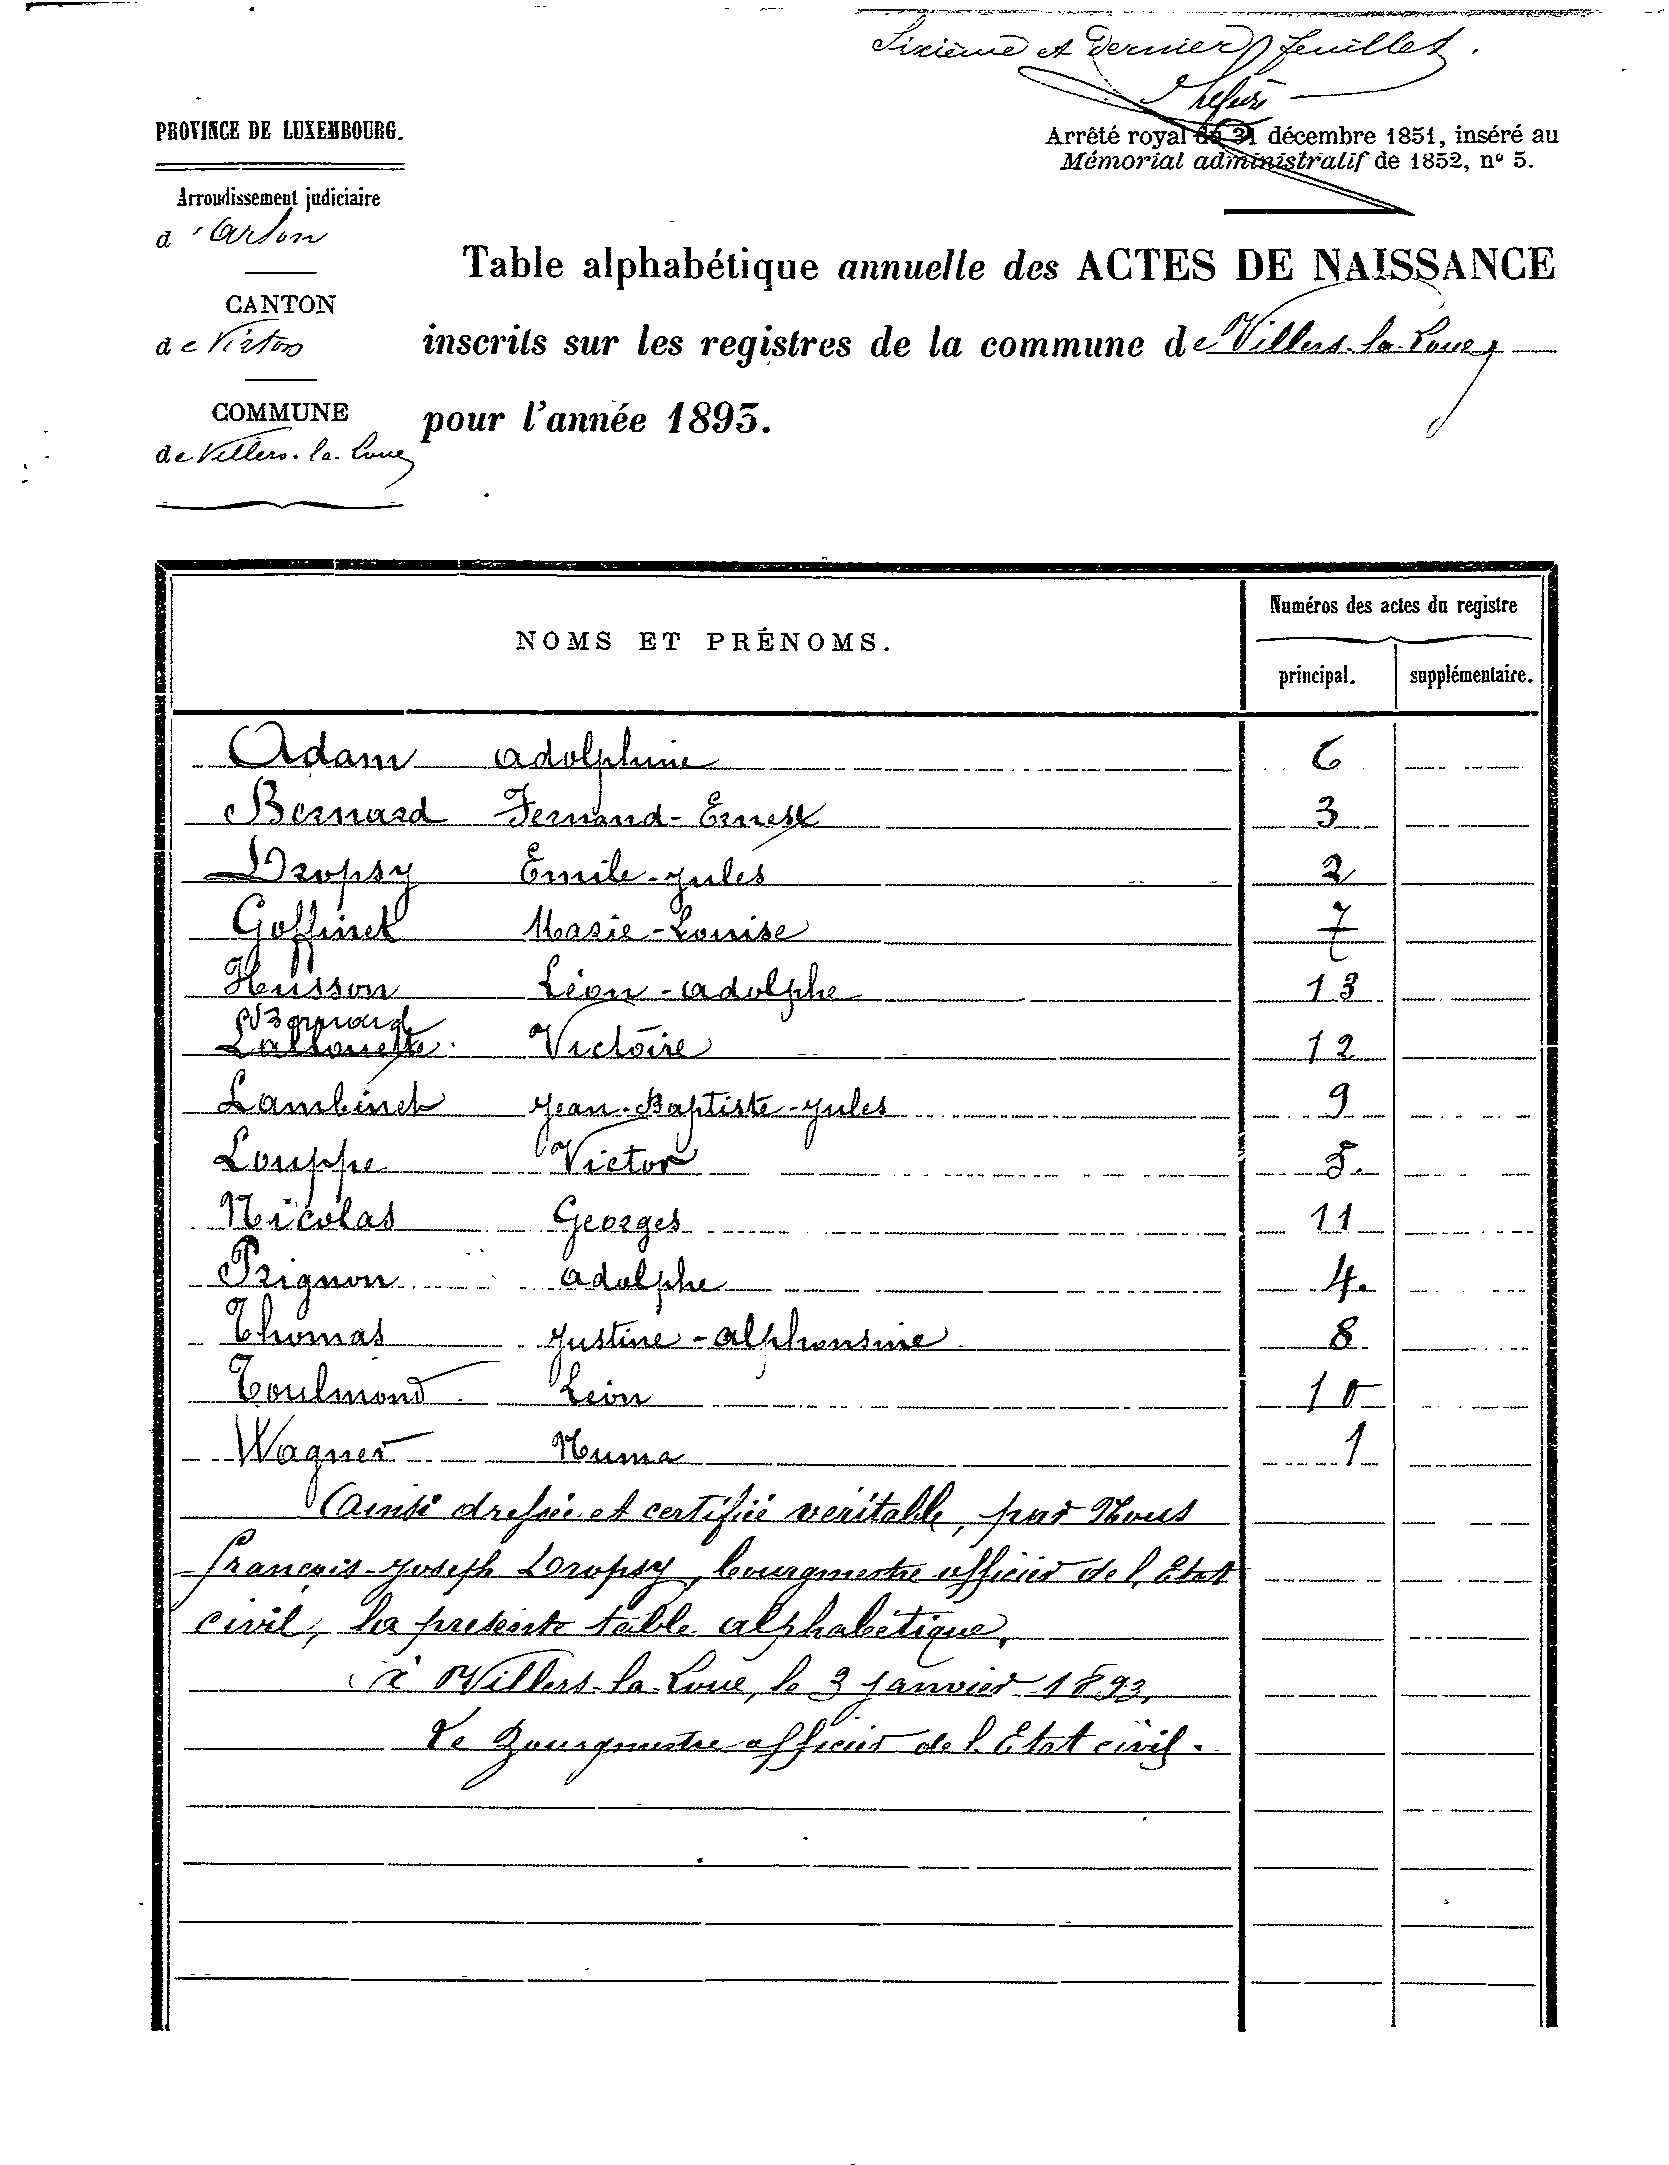 Sixième et Dernier feuillet.
PROVINCE DE LUXEMBOURG.
Arrêté royal du 31 décembre 1851, inséré au
Mémorial administratif de 1852, nº 5.
Arrondissement judiciaire
d'Arlon
CANTON
de Virton
COMMUNE
de Villers-la-Loue
Table alphabétique annuelle des ACTES DE NAISSANCE
inscrits sur les registres de la commune de Villers-la-Loue,
pour l'année 1893.
NOMS ET PRÉNOMS.
Numéros des actes du registre
principal. supplémentaire.
Adam Adolphine 6
Bernard Fernand-Ernest 3
Dropsy Emile-Jules 2
Goffinet Marie-Louise 7
Husson Léon-Adolphe 13
Bernard
Lallouette Victoire 12
Lambinet Jean-Baptiste-Jules 9
Louppe Victor 5.
Nicolas Georges 11
Prignon Adolphe 4.
Thomas Justine-Alphonsine 8
Toulmond Léon 10
Wagner Numa 1
Ainsi dressée et certifié véritable, par Nous
François-Joseph Dropsy, bourgmestre officier de l'Etat
civil, la présente table alphabétique,
à Villers-la-Loue, le 3 janvier 1893,
Le Bourgmestre officier de l'Etat civil.